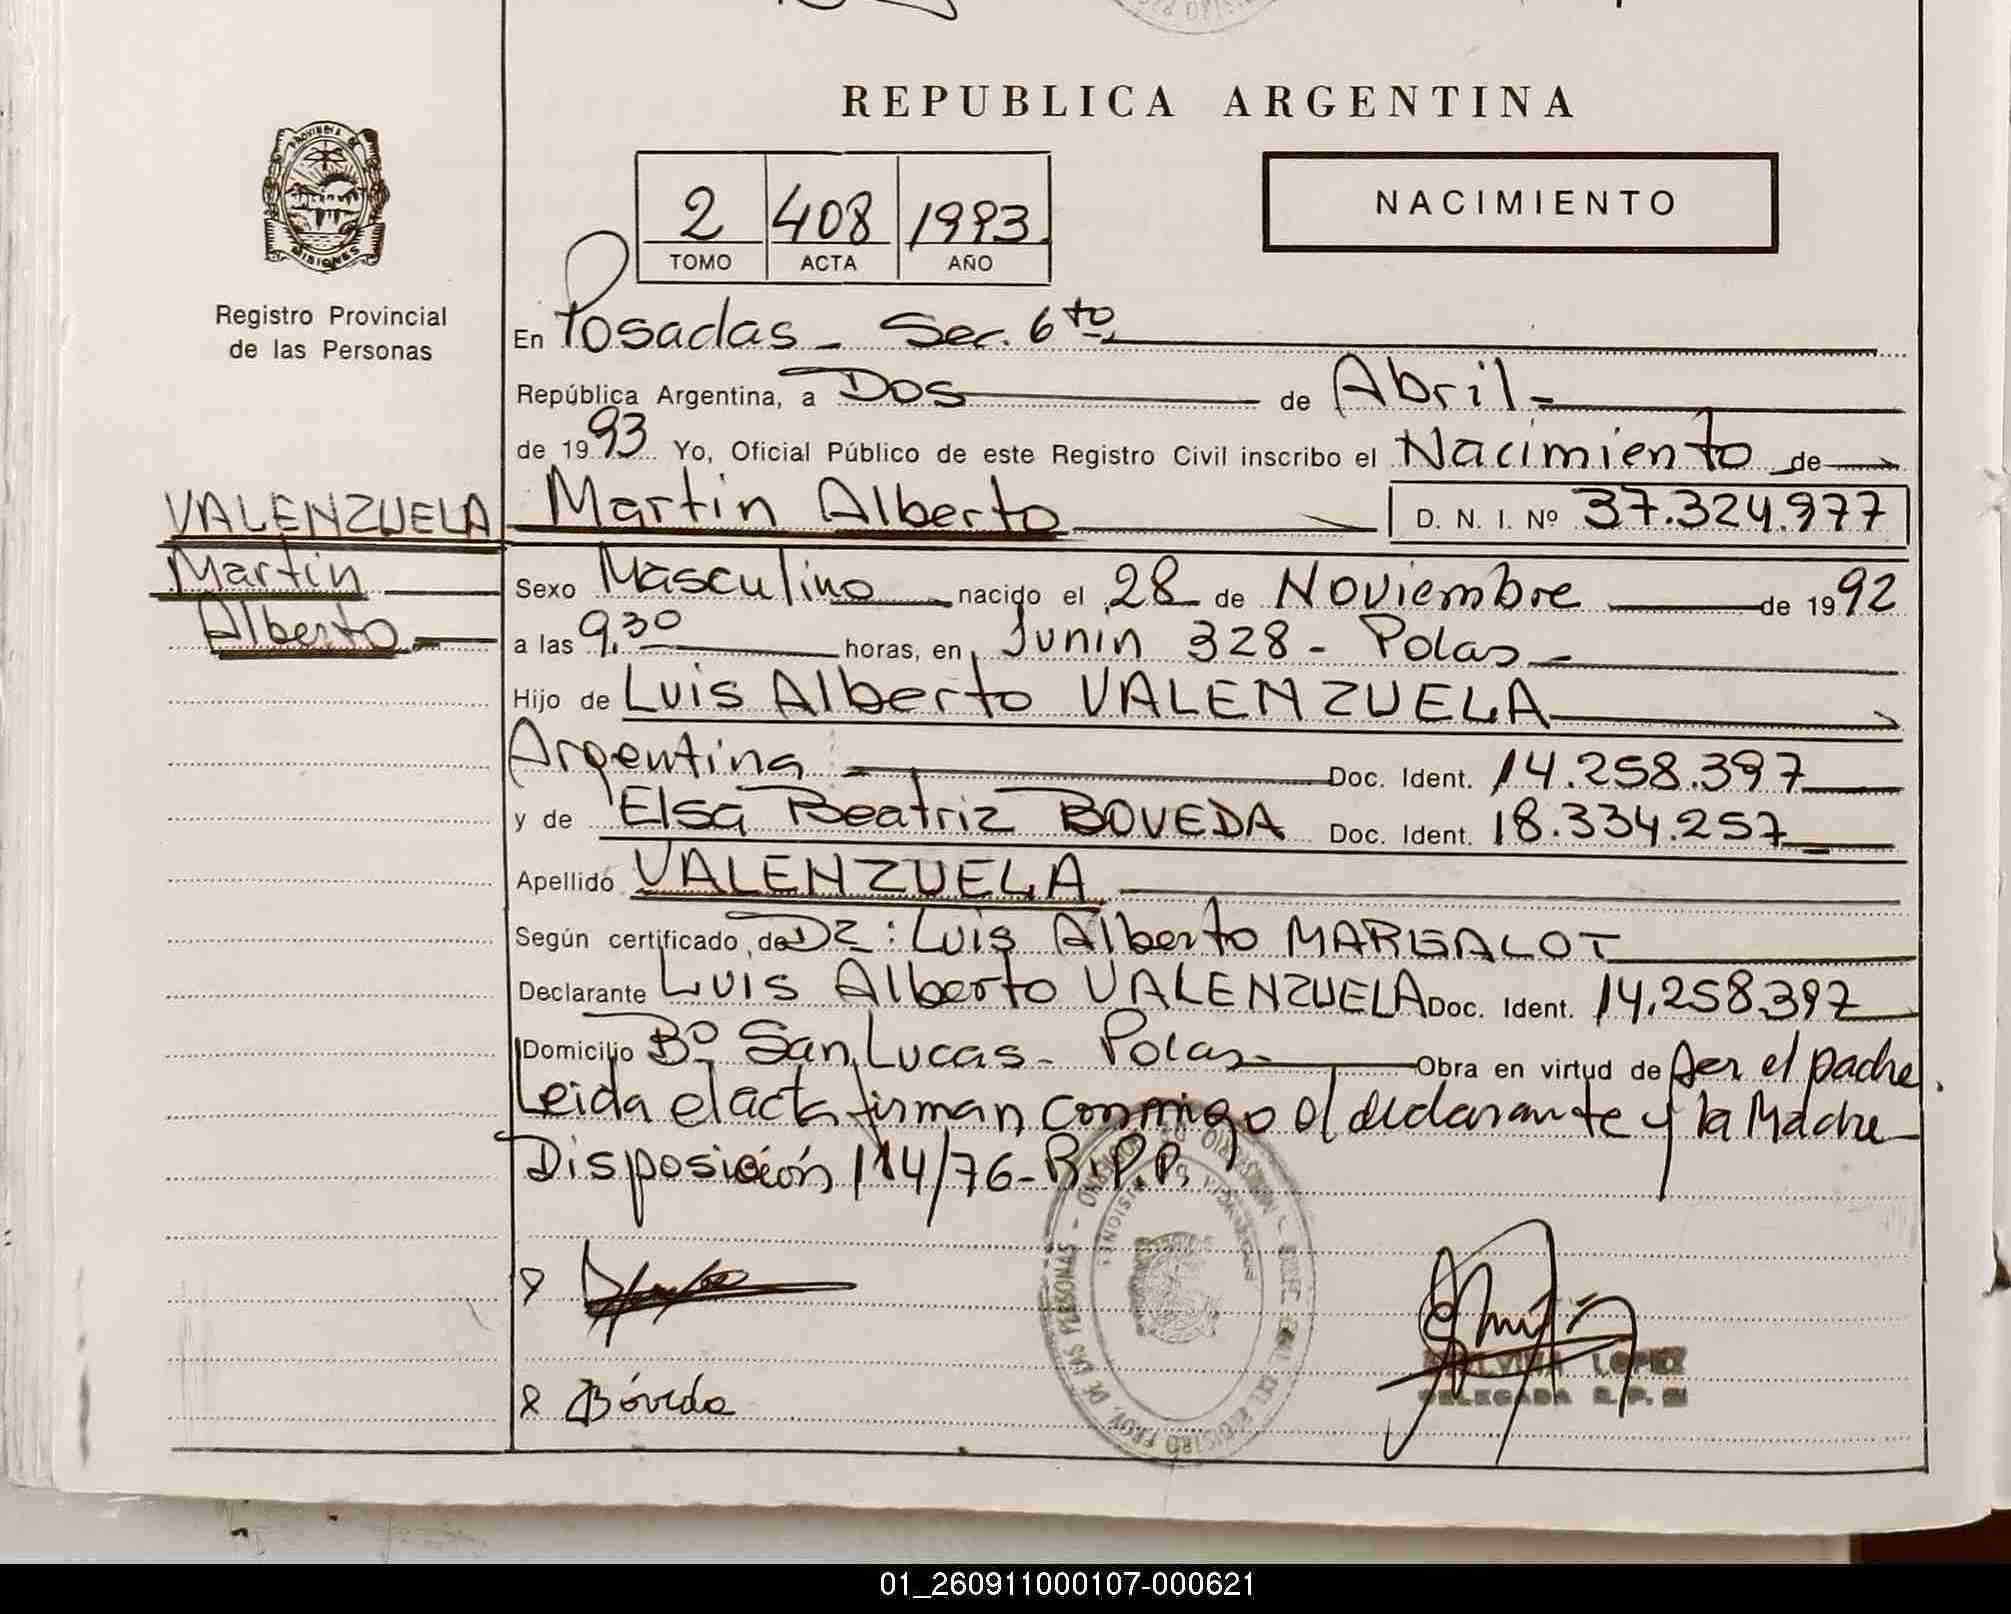 REPUBLICA ARGENTINA
NACIMIENTO
2 408 1993
TOMO ACTA AÑO
PROVINCIA DE
MISIONES
Registro Provincial
de las Personas
En Posadas - Sec. 6to
República Argentina, a Dos de Abril -
de 1993 Yo, Oficial Público de este Registro Civil inscribo el Nacimiento de
VALENZUELA Martin Alberto D. N. I. Nº 37.324.977
Martin
Alberto
Sexo Masculino nacido el 28 de Noviembre de 1992
a las 9,30 horas, en Junin 328 - Pdas -
Hijo de Luis Alberto VALENZUELA
Argentina Doc. Ident. 14.258.397
y de Elsa Beatriz BOVEDA Doc. Ident. 18.334.257
Apellido VALENZUELA
Según certificado de DZ: Luis Alberto MARGALOT
Declarante Luis Alberto VALENZUELA Doc. Ident. 14.258.397
Domicilio Bº San Lucas - Pdas - Obra en virtud de ser el padre.
Leida el acta firman conmigo el declarante y la Madre
Disposición 114/76 - R.P.P.
Bóveda
LOPEZ
DELEGADA R.P.P.
01_260911000107-000621